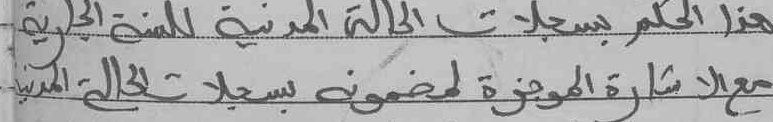 هذا الحكم بسجلات الحالة المدنية للسنة الجارية
مع الاشارة الموجزة لمضمونه بسجلات الحالة المدنية